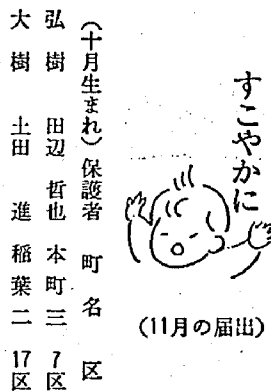 すこやかに
(11月の届出)
(十月生まれ) 保護者 町名 区
弘樹 田辺哲也 本町三 7区
大樹 土田進 稲葉二 17区